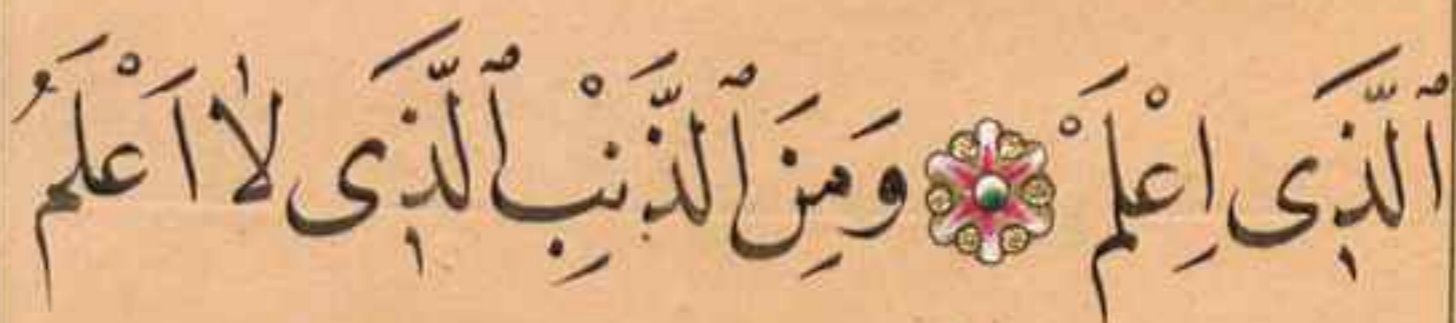 ٱلَّذٖى اِعْلَمْ وَمِنَ ٱلذَّنْبِ ٱلَّذٖى لٰا اَعْلَمُ